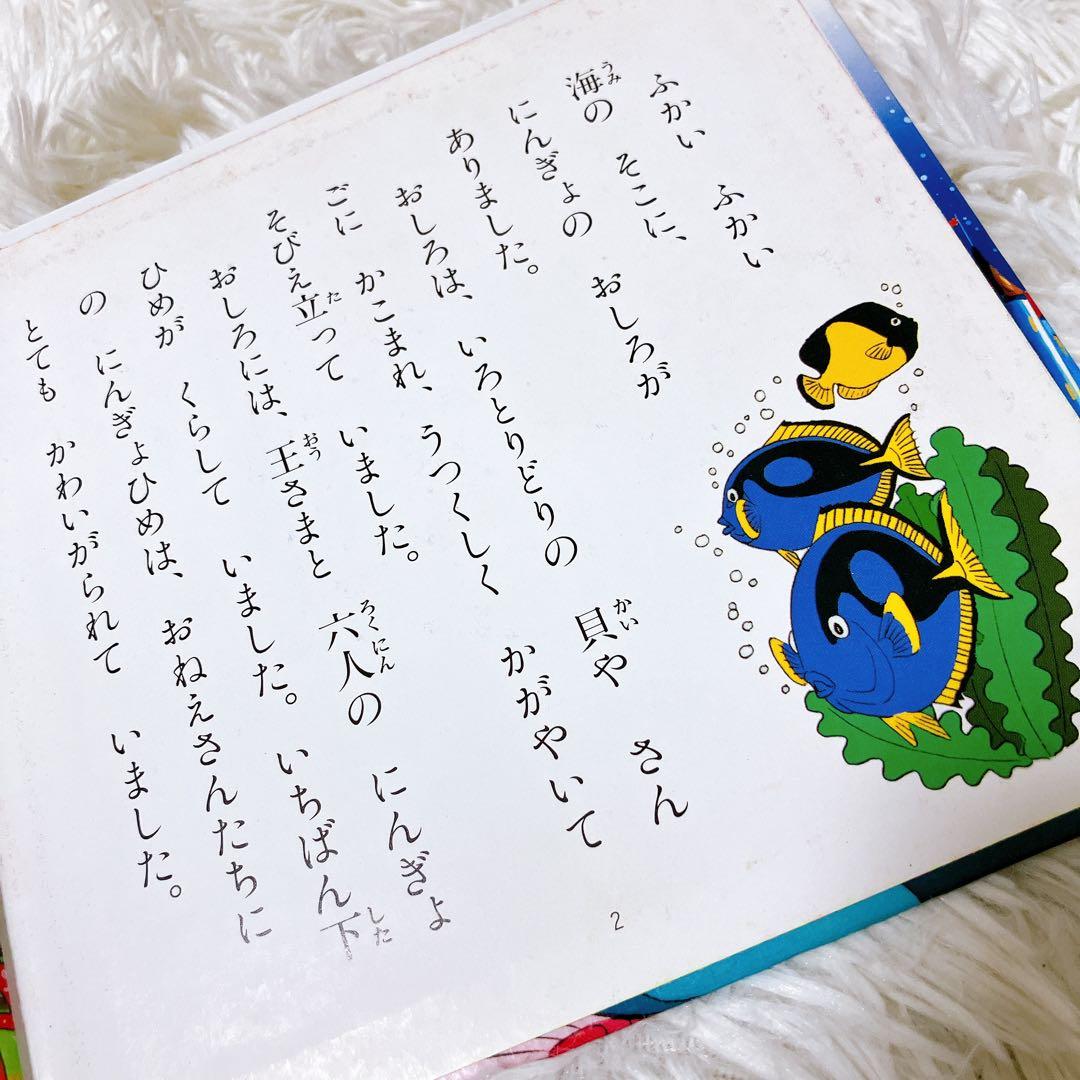 ふかい　ふかい
海の　そこに、
にんぎょの　おしろが
ありました。
おしろは、いろとりどりの　貝や　さん
ごに　かこまれ、うつくしく　かがやいて
そびえ立って　いました。
おしろには、王さまと　六人の　にんぎょ
ひめが　くらして　いました。いちばん下
の　にんぎょひめは、おねえさんたちに
とても　かわいがられて　いました。
2